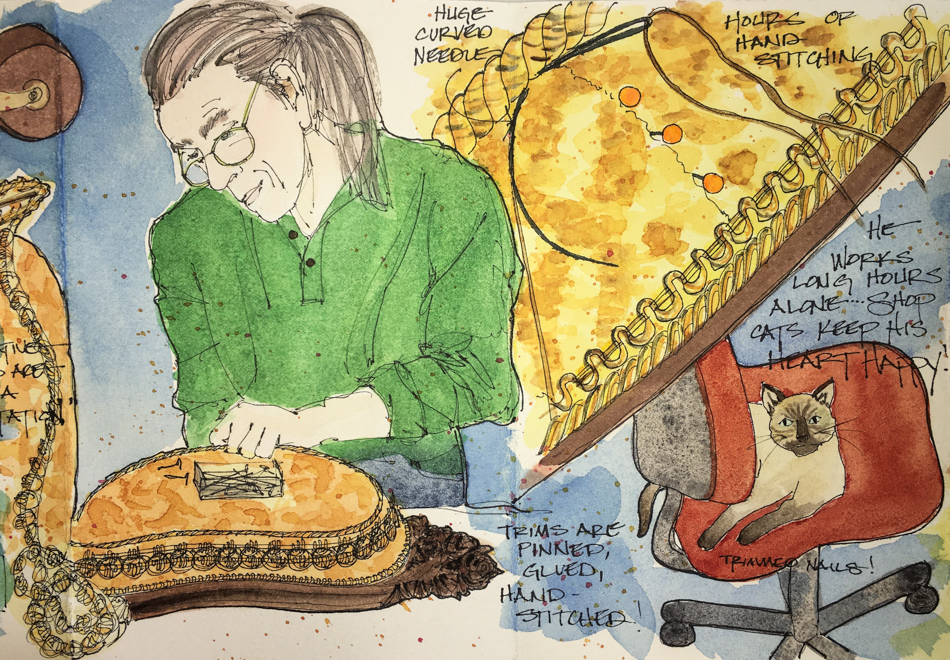 HUGE
CURVED
NEEDLE
HOURS OF
HAND-
STITCHING
HE
WORKS
LONG HOURS
ALONE...SHOP
CATS KEEP HIS
HEART HAPPY!
ARE
A
TATION"
TRIMS ARE
PINNED,
GLUED,
HAND-
STITCHED!
TRIMMED NAILS!